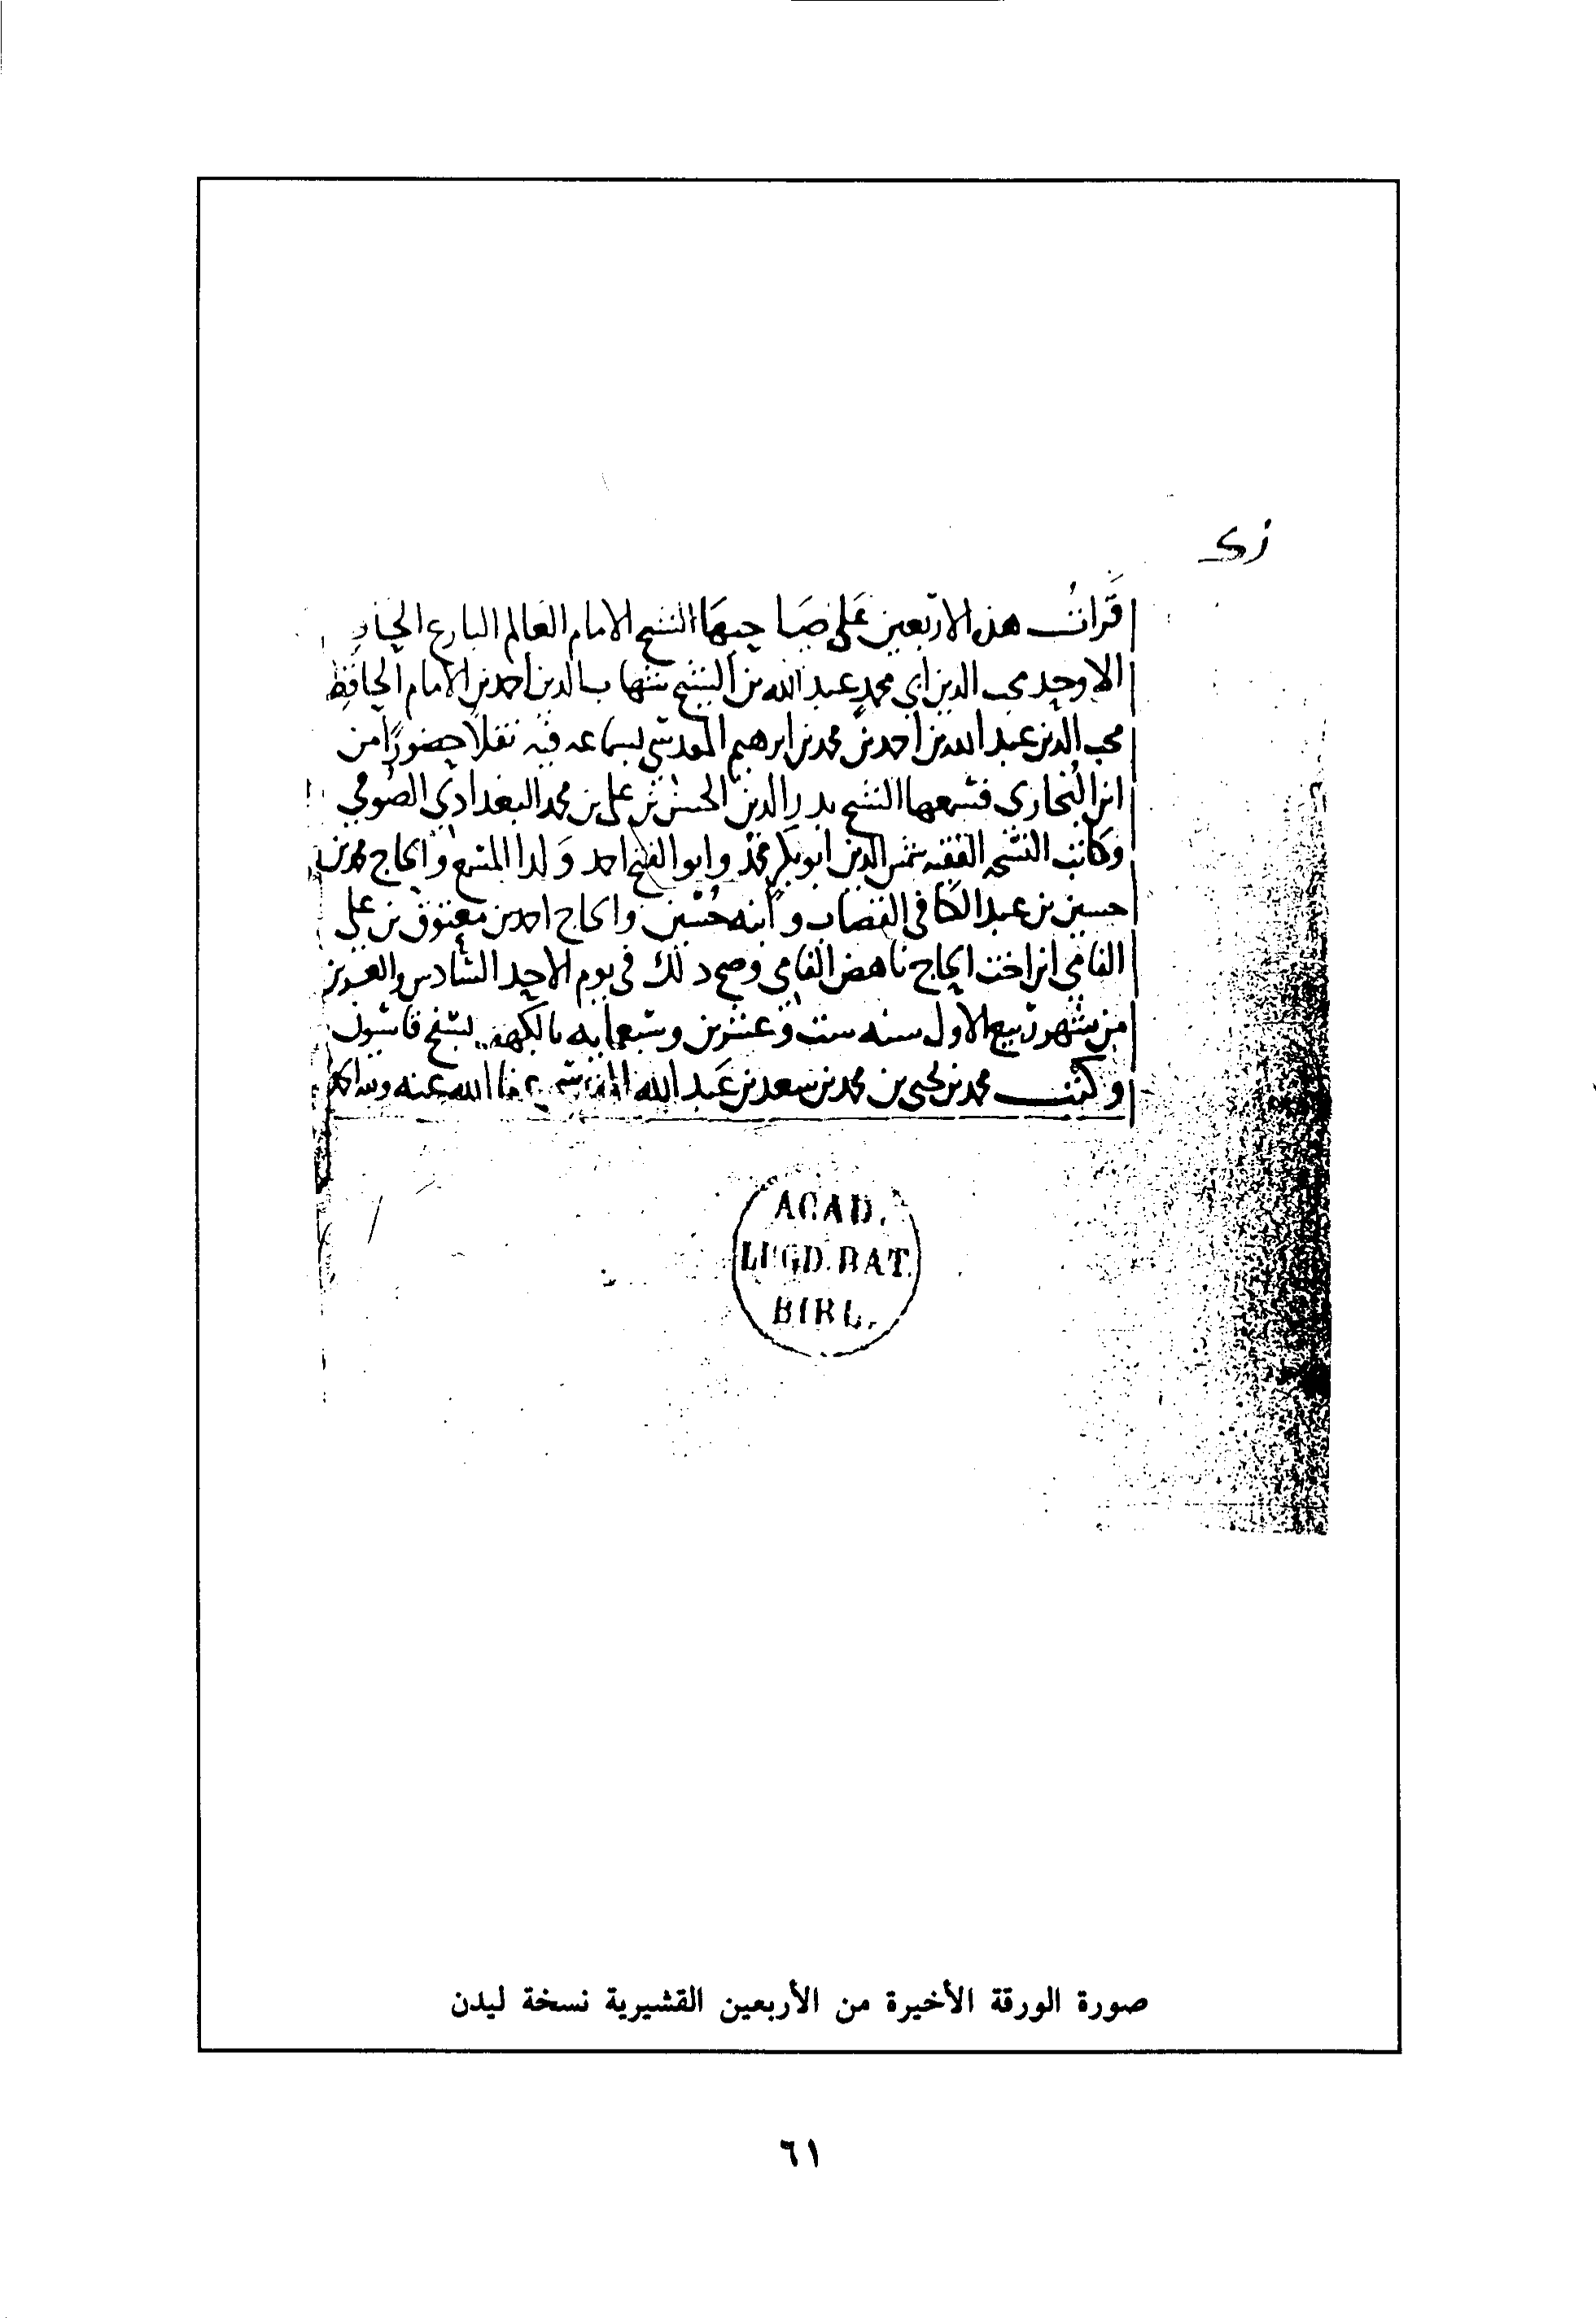 قرات هذه الاربعين على صاحبها الشيخ الامام العالم البارع الحافظ
الاوحد محب الدين ابي محمد عبد الله بن الشيخ شهاب الدين احمد بن الامام الحافظ
محب الدين عبد الله بن احمد بن محمد بن ابرهيم المقدسي بسماعه فيه نقلا حضورا من
ابن البخاري فسمعها الشيخ بدر الدين الحسن بن علي بن محمد البغدادي الصوفي
وكاتب النسخه الفقيه شمس الدين ابو بكر محمد وابو الفتح احمد ولدا المسمع والحاج محمد بن
حسين بن عبد الكافي القصاب وابنه حسين والحاج احمد بن معتوق بن علي
الفامي ابن اخت الحاج ناهض الفامي وصح ذلك في يوم الاحد السادس والعشرين
من شهر ربيع الاول سنه ست وعشرين وسبعمايه بالكهف بسفح قاسيون
وكتب محمد بن يحيى بن محمد بن سعد بن عبد الله المقدسي عفا الله عنه
ACAD.
LUGD. BAT.
BIBL.
صورة الورقة الأخيرة من الأربعين القشيرية نسخة ليدن
٦١